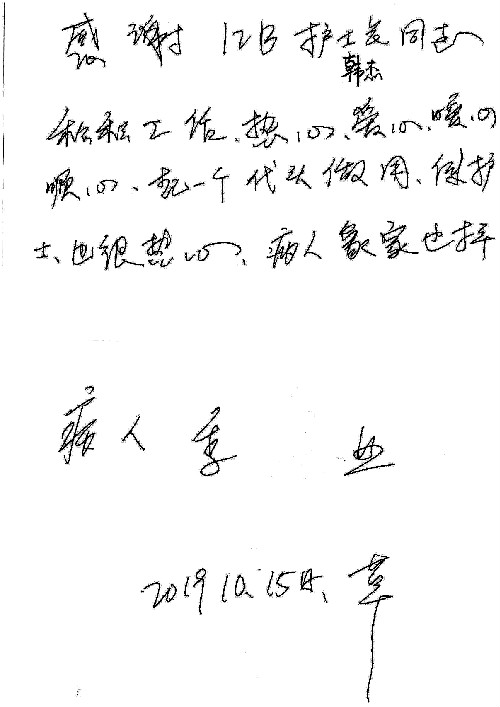 感谢 12B 护士长同志
韩杰
积极工作、热心、爱心、暖心
顺心、起一个代头做用、使护
士、也很热心、病人象家也样
病人 李 女
2019 10.15日、草